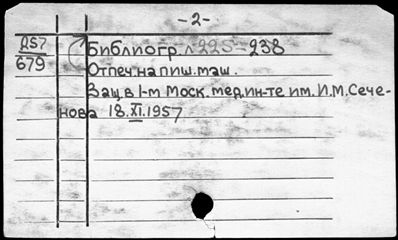 -2-
Д57
679
Библиогр. л 225-238
Отпеч. на пиш. маш.
Защ. в 1-м Моск. мед. ин-те им. И. М. Сече-
нова 18. XI. 1957